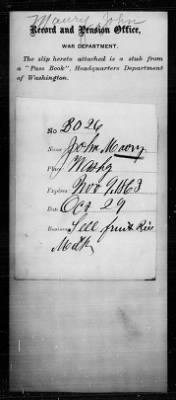 Maury, John
Record and Pension Office,
WAR DEPARTMENT.
The slip hereto attached is a stub from
a "Pass Book", Headquarters Department
of Washington.
No 8026
Name John Maury
Place Washg
Expires Nov 9, 1863
Date Oct 29
Business Sell fruit
Milk